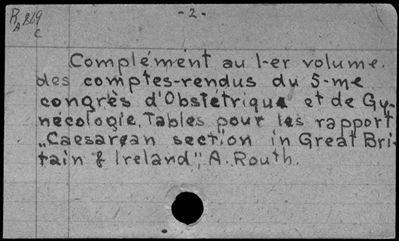 - 2 -
Complément au 1-er volume
des comptes-rendus du 5-me
congrès d'Obstétrique et de Gy-
nécologie. Tables pour les rapport
„Caesarean section in Great Bri-
tain & Ireland", A. Routh.